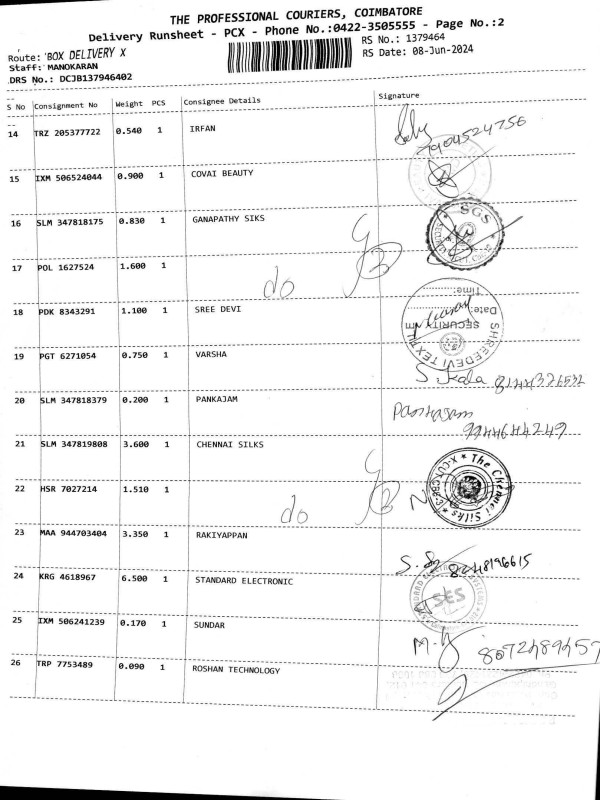 THE PROFESSIONAL COURIERS, COIMBATORE
Delivery Runsheet - PCX - Phone No.:0422-3505555 - Page No.:2
Route: BOX DELIVERY X
RS No.: 1379464
Staff: MANOKARAN
RS Date: 08-Jun-2024
DRS No.: DCJB137946402
S No Consignment No Weight PCS Consignee Details Signature
14 TRZ 205377722 0.540 1 IRFAN
15 IXM 506524044 0.900 1 COVAI BEAUTY
16 SLM 347818175 0.830 1 GANAPATHY SIKS
SGS
17 POL 1627524 1.600 1 do
18 PDK 8343291 1.100 1 SREE DEVI
Time:
Date:
SECURITY
SHREEDEVI TEXTI
19 PGT 6271054 0.750 1 VARSHA
20 SLM 347818379 0.200 1 PANKAJAM
9944644249
21 SLM 347819808 3.600 1 CHENNAI SILKS
The Chennai Silks
22 HSR 7027214 1.510 1 do
23 MAA 944703404 3.350 1 RAKIYAPPAN
8248196615
24 KRG 4618967 6.500 1 STANDARD ELECTRONIC
SES
25 IXM 506241239 0.170 1 SUNDAR
8072489457
26 TRP 7753489 0.090 1 ROSHAN TECHNOLOGY